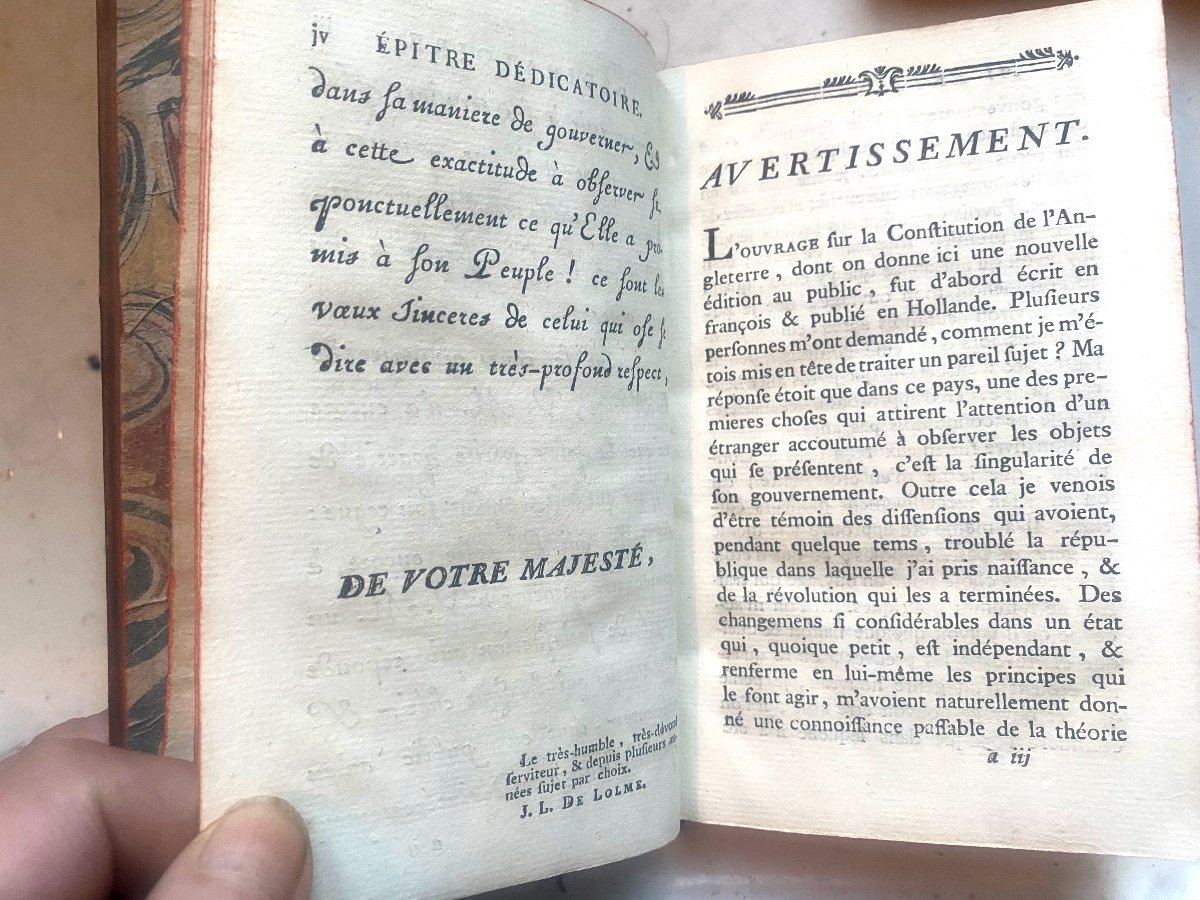 jv ÉPITRE DÉDICATOIRE.
dans ſa maniere de gouverner, &
à cette exactitude à obſerver
ponctuellement ce qu'Elle a
mis à ſon Peuple ! ce ſont
vœux ſinceres de celui qui oſe
dire avec un très-profond reſpect,
DE VOTRE MAJESTÉ,
Le très-humble, très-dévoué
ſerviteur, & depuis pluſieurs
nées ſujet par choix.
J. L. DE LOLME.
AVERTISSEMENT.
L'OUVRAGE ſur la Conſtitution de l'An-
gleterre, dont on donne ici une nouvelle
édition au public, fut d'abord écrit en
françois & publié en Hollande. Pluſieurs
perſonnes m'ont demandé, comment je m'é-
tois mis en tête de traiter un pareil ſujet ? Ma
réponſe étoit que dans ce pays, une des pre-
mieres choſes qui attirent l'attention d'un
étranger accoutumé à obſerver les objets
qui ſe préſentent, c'eſt la ſingularité de
ſon gouvernement. Outre cela je venois
d'être témoin des diſſenſions qui avoient,
pendant quelque tems, troublé la répu-
blique dans laquelle j'ai pris naiſſance, &
de la révolution qui les a terminées. Des
changemens ſi conſidérables dans un état
qui, quoique petit, eſt indépendant, &
renferme en lui-même les principes qui
le font agir, m'avoient naturellement don-
né une connoiſſance paſſable de la théorie
a iij